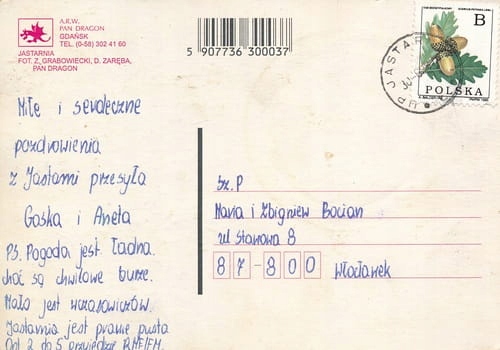 A.R.W.
PAN DRAGON
GDAŃSK
TEL. (0-58) 302 41 60
JASTARNIA
FOT. Z. GRABOWIECKI, D. ZARĘBA,
PAN DRAGON
5 907736 300037
B
POLSKA
UP JASTAR
Miłe i serdeczne
pozdrowienia
z Jastarni przesyła
Gośka i Aneta
PS. Pogoda jest ładna.
choć są chwilowe burze.
Mało jest wczasowiczów.
Jastarnia jest prawie pusta
Od 2 do 5 przyjedzie RMFFM.
Sz. P
Maria i Zbigniew Bocian
ul Stanowa 8
87-800 Włocławek